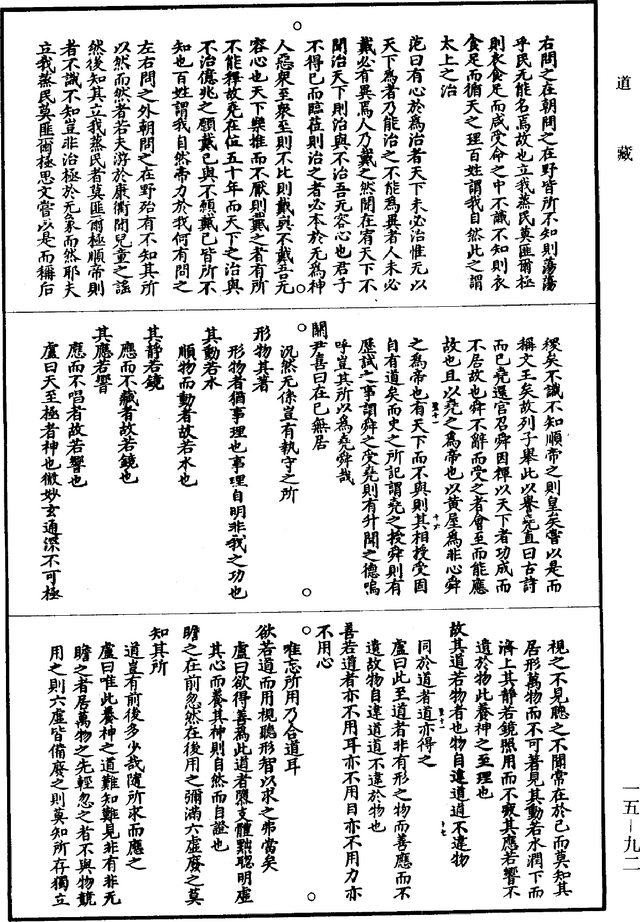 道藏
右問之在朝問之在野皆所不知則蕩蕩
乎民无能名焉故也立我蒸民莫匪爾極
則衣食足而咸受命之中不識不知則衣
食足而循天之理百姓謂我自然此之謂
太上之治
范曰有心於為治者天下未必治惟无以
天下為者乃能治之不能為異者人未必
戴必有異焉人乃戴之然聞在宥天下不
聞治天下則治與不治吾无容心也君子
不得已而臨莅則治之者必本於无為神
人惡眾至眾至則不比則戴與不戴吾无
容心也天下樂推而不厭則戴之者有所
不能釋故堯在位五十年而天下之治與
不治億兆之願戴己與不願戴己皆所不
知也百姓謂我自然帝力於我何有問之
左右問之外朝問之在野殆有不知其所
以然而然者若夫游於康衢聞兒童之謠
然後知其立我蒸民者莫匪爾極順帝則
者不識不知豈非治極於无象而然耶夫
立我蒸民莫匪爾極思文嘗以是而稱后
稷矣不識不知順帝之則皇矣嘗以是而
稱文王矣故列子舉此以譽堯直曰古詩
而已堯還宮召舜因禪以天下者功成而
不居故也舜不辭而受之者會至而能應
故也且以堯之為帝也以黃屋為非心舜
之為帝也有天下而不與則其相授受固
自有道矣而史之所記謂堯之授舜則有
歷試之事謂舜之受堯則有升聞之德嗚
呼豈其所以為堯舜哉
關尹喜曰在己無居
汎然无係豈有執守之所
形物其著
形物者猶事理也事理自明非我之功也
其動若水
順物而動者故若水也
其靜若鏡
應而不藏者故若鏡也
其應若響
應而不唱者故若響也
盧曰夫至極者神也微妙玄通深不可極
視之不見聽之不聞常在於己而莫知其
居形萬物而不可著見其動若水潤下而
濟上其靜若鏡照用而不疲其應若響不
遺於物此養神之至理也
故其道若物者也物自違道道不違物
同於道者道亦得之
盧曰此至道者非有形之物而善應而不
遺故物自違道道不違於物也
善若道者亦不用耳亦不用目亦不用力亦
不用心
唯忘所用乃合道耳
欲若道而用視聽形智以求之弗當矣
盧曰欲得善為此道者隳支體黜聰明虛
其心而養其神則自然而自證也
瞻之在前忽然在後用之彌滿六虛廢之莫
知其所
道豈有前後多少哉隨所求而應之
盧曰唯此養神之道難知難見非有非无
瞻之者居萬物之先輕忽之者不與物競
用之則六虛皆備廢之則莫知所存獨立
一五—九二